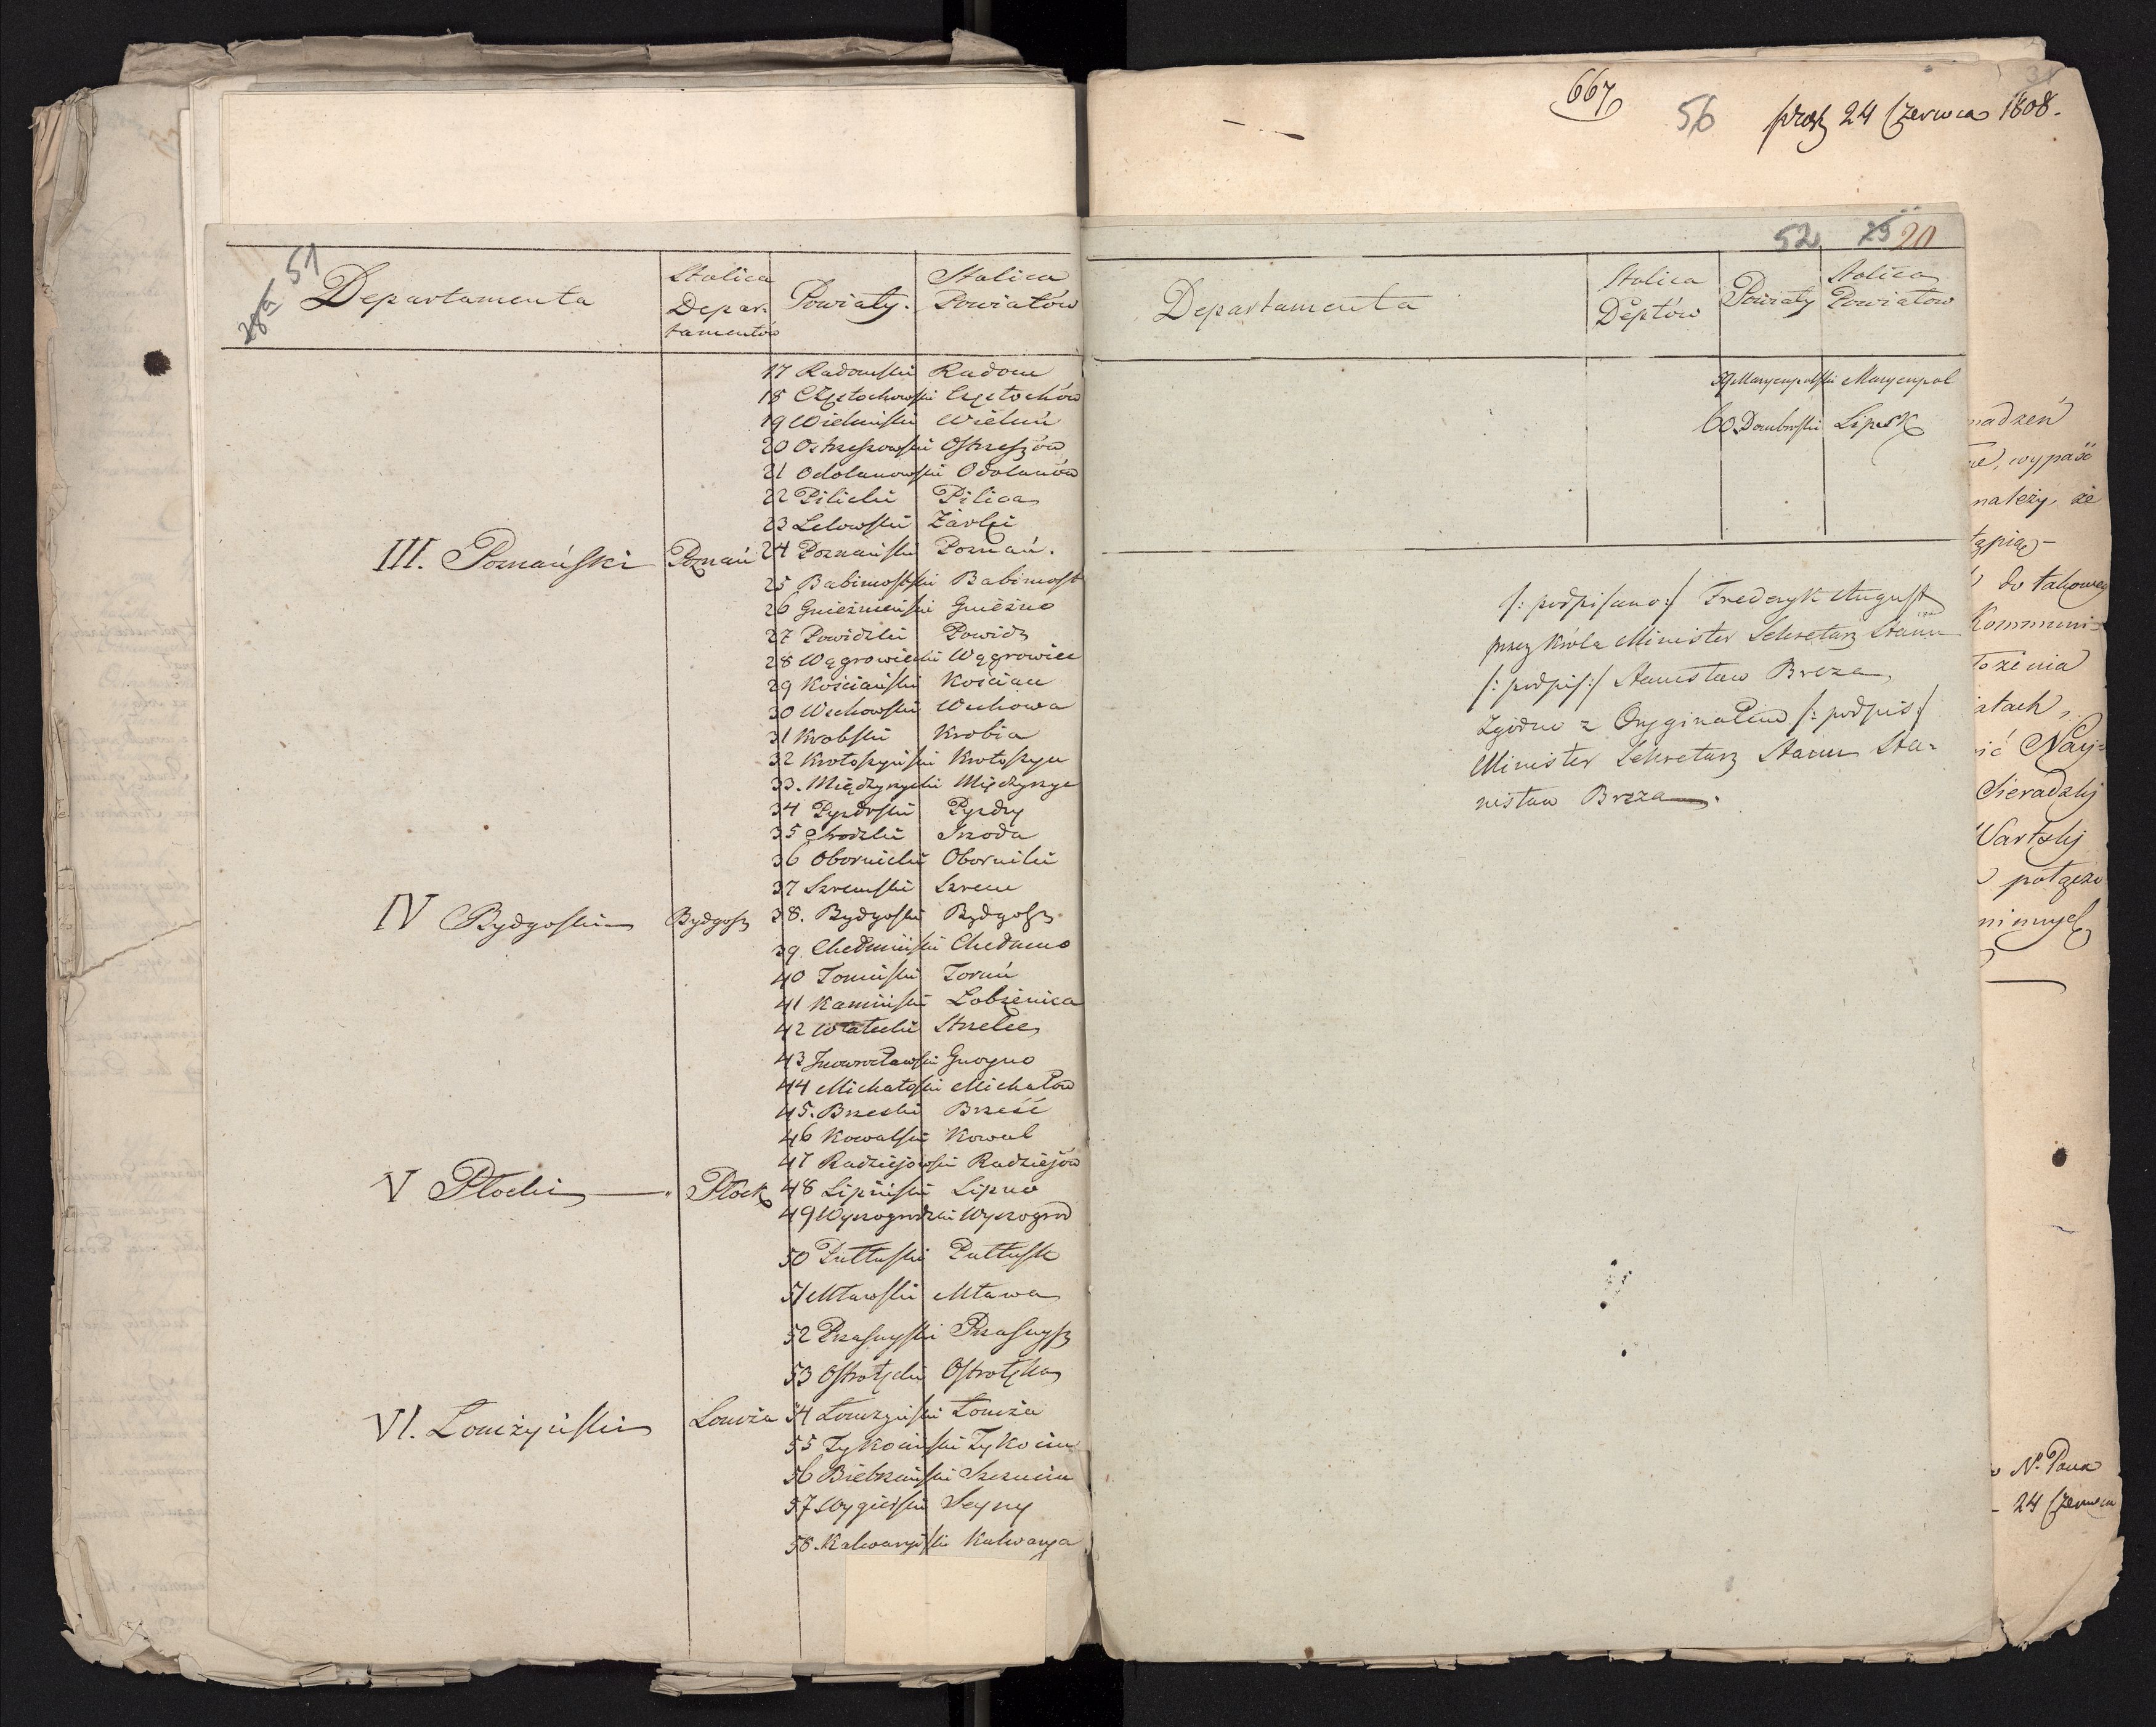 51
Departamenta Stolica Depar- Powiaty. Stolica
tamentów Powiatów
17 Radomski Radom
18 Częstochowski Częstochów
19 Wieluński Wieluń
20 Ostrzeszowski Ostrzeszów
21 Odolanowski Odolanów
22 Pilicki Pilica
23 Lelowski Żarki
III. Poznański Poznań 24 Poznański Poznań.
25 Babimostski Babimost
26 Gnieźnieński Gnieźno
27 Powidzki Powidz
28 Wągrowiecki Wągrowiec
29 Kościański Kościan
30 Wschowski Wschowa
31 Krobski Krobia
32 Krotoszyński Krotoszyn
33. Międzyrzycki Międzyrzyc
34 Pyzdrski Pyzdry
35 Srodzki Szroda
36 Obornicki Oborniki
37 Szremski Szrem
IV Bydgoski Bydgosz 38. Bydgoski Bydgosz
39. Chełmiński Chełmno
40 Toruński Toruń
41 Kamiński Łobżenica
42 Wałecki Strzelce
43 Inowrocławski Gnoyno
44 Michałoski Michałow
45. Brzeski Brześć
46 Kowalski Kowal
47 Radziejowski Radziejów
V Płocki Płock 48 Lipiński Lipno
49 Wyszogrodzki Wyszogrod
50 Pułtuski Pułtusk
51 Mławski Mława
52 Przasnyski Przasnysz
53 Ostrołęcki Ostrołęka
VI. Łomżyński Łomża 54 Łomżyński Łomża
55 Tykociński Tykocin
56 Biebrzański Szczucin
57 Wygierski Seyny
58. Kalwaryiski Kalwarya
667 56 24 Czerwca 1808.
52 25 20
Departamenta Stolica Deptów Powiaty Stolica Powiatow
59 Maryenpolski Maryenpol
60 Dombrofski Lipsk
/: podpisano :/ Frederyk August
przez Króla Minister Sekretarz Stanu
/: podpis :/ Stanisław Breza
Zgodno z Orygginałem /: podpis :/
Minister Sekretarz Stanu Sta-
nisław Breza.
wypaść
należy, że
do takowey
atach,
Sieradzkij
Wartskij
N. Pana
24 Czerwca